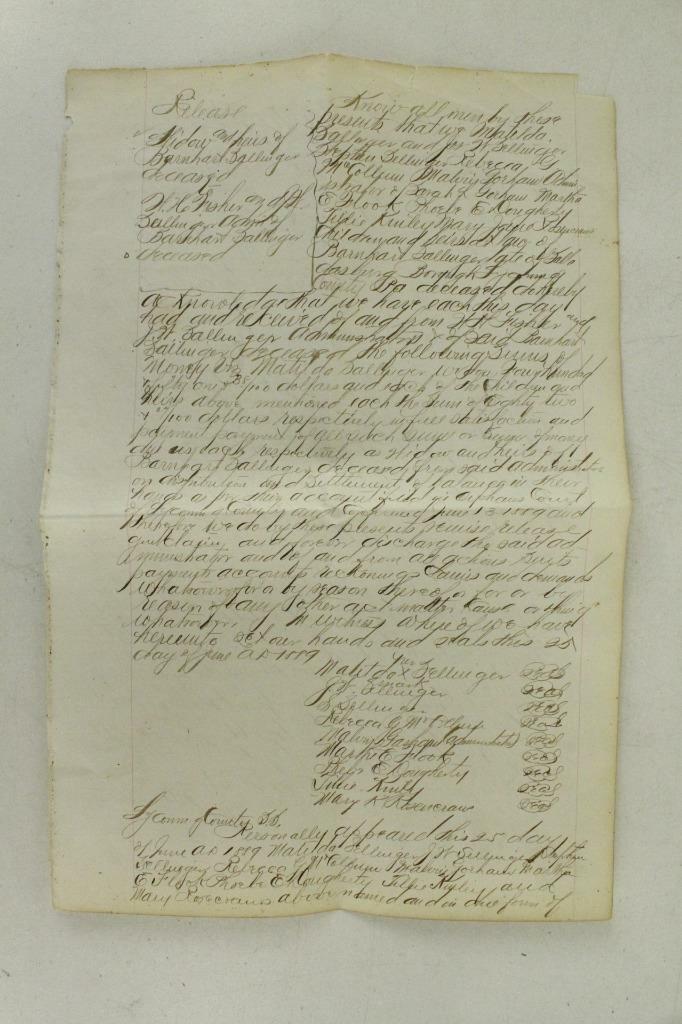 Release
Widow and heirs of
Barnhart Sallinger
deceased
W H Fisher and J W
Sallinger Admrs of
Barnhart Sallinger
deceased
Know all men by these
presents that we Matilda
Sallinger and J W Sellinger
Stephen Sellinger Rebecca G
McCollum Malvin Gorham Admin
istrator of Sarah Gorham Martha
E Flook Phoebe E Dougherty
Mary
Children and heirs at law of
Barnhart Sallinger late of
Borough Lycoming
County Pa deceased do hereby
acknowledge that we have each this day
had and received of and from W H Fisher and
J W Sallinger Administrators of said Barnhart
Sallinger deceased the following sums of
Money viz Matilda Sallinger widow Four hundred
/100 dollars and each of the Children and
heirs above mentioned each the sum of Eighty two
/100 dollars respectively in full satisfaction and
payment payment of all such sums or sums of money
due us each respectively as Widow and heirs of
Barnhart Sallinger deceased from said administrators
on distribution and settlement of balance in their
hands as per their account filed in Orphans Court
of Lycoming County and Confirmed June 13 1889 and
therefore we do by these presents remise release
quit claim and forever discharge the said ad
ministrator and of and from all actions suits
payments accounts reckonings Claims and demands
whatsoever for or by reason thereof or for or by
reason of any other act matter cause or thing
whatsoever In witness whereof we have
hereunto set our hands and seals this 25
day of June AD 1889
Matilda X Sellinger Seal
her
mark
J W Sellinger Seal
S Sellinger Seal
Rebecca G Seal
Malvin Gorham administrator Seal
Martha E Flook Seal
E Dougherty Seal
Seal
Mary Rosencrans Seal
Lycoming County SS.
Personally appeared this 25 day
of June AD 1889 Matilda Sellinger J W Sellinger Stephen
Sellinger Rebecca G Malvin Gorham Martha
E Flook Phoebe E Dougherty and
Mary Rosecrans above named and in due form of